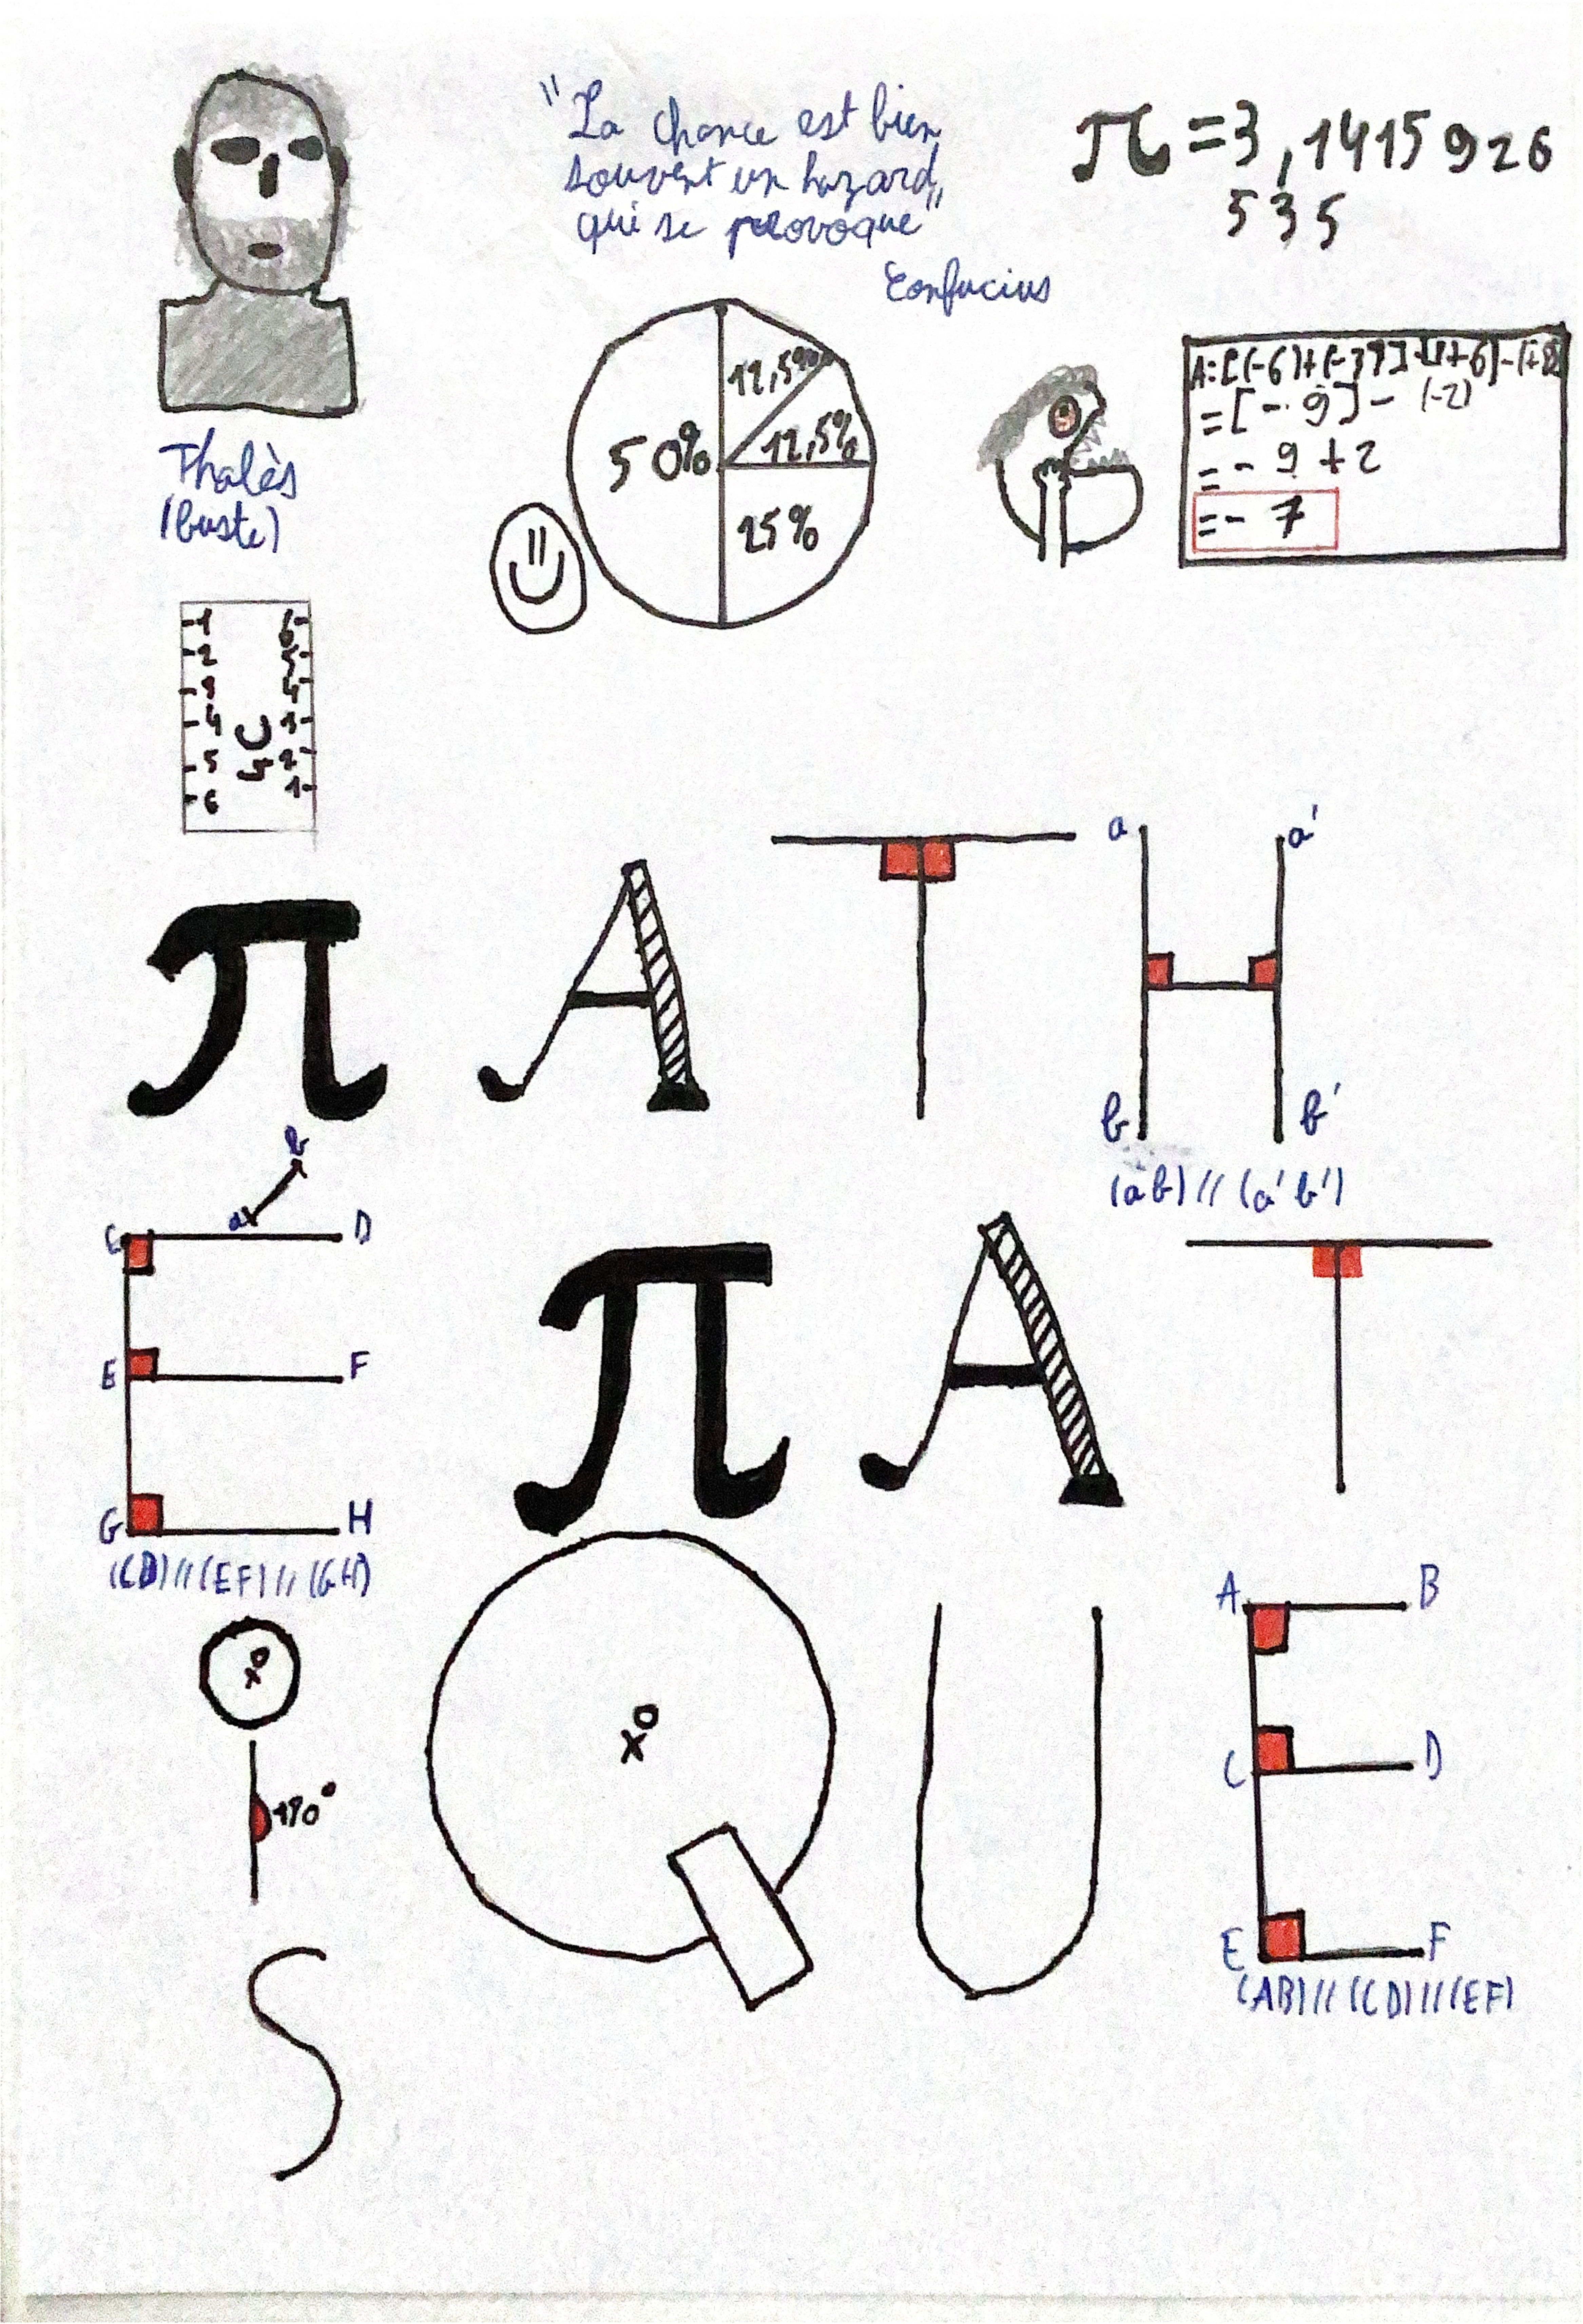 "La chance est bien
souvent un hazard
qui se provoque"
Confucius
π = 3,1415926
535
Thalès
(buste)
50%
12,5%
12,5%
25%
= [- 9] - (-2)
= - 9 + 2
= - 7
1 6
2 5
3 4
4 3
5 2
6 1
π A T H
a a'
b b'
(ab) // (a'b')
b
a
C D
E F
G H
(CD) // (EF) // (GH)
π A T
O
180°
Q U
O
A B
C D
E F
(AB) // (CD) // (EF)
S